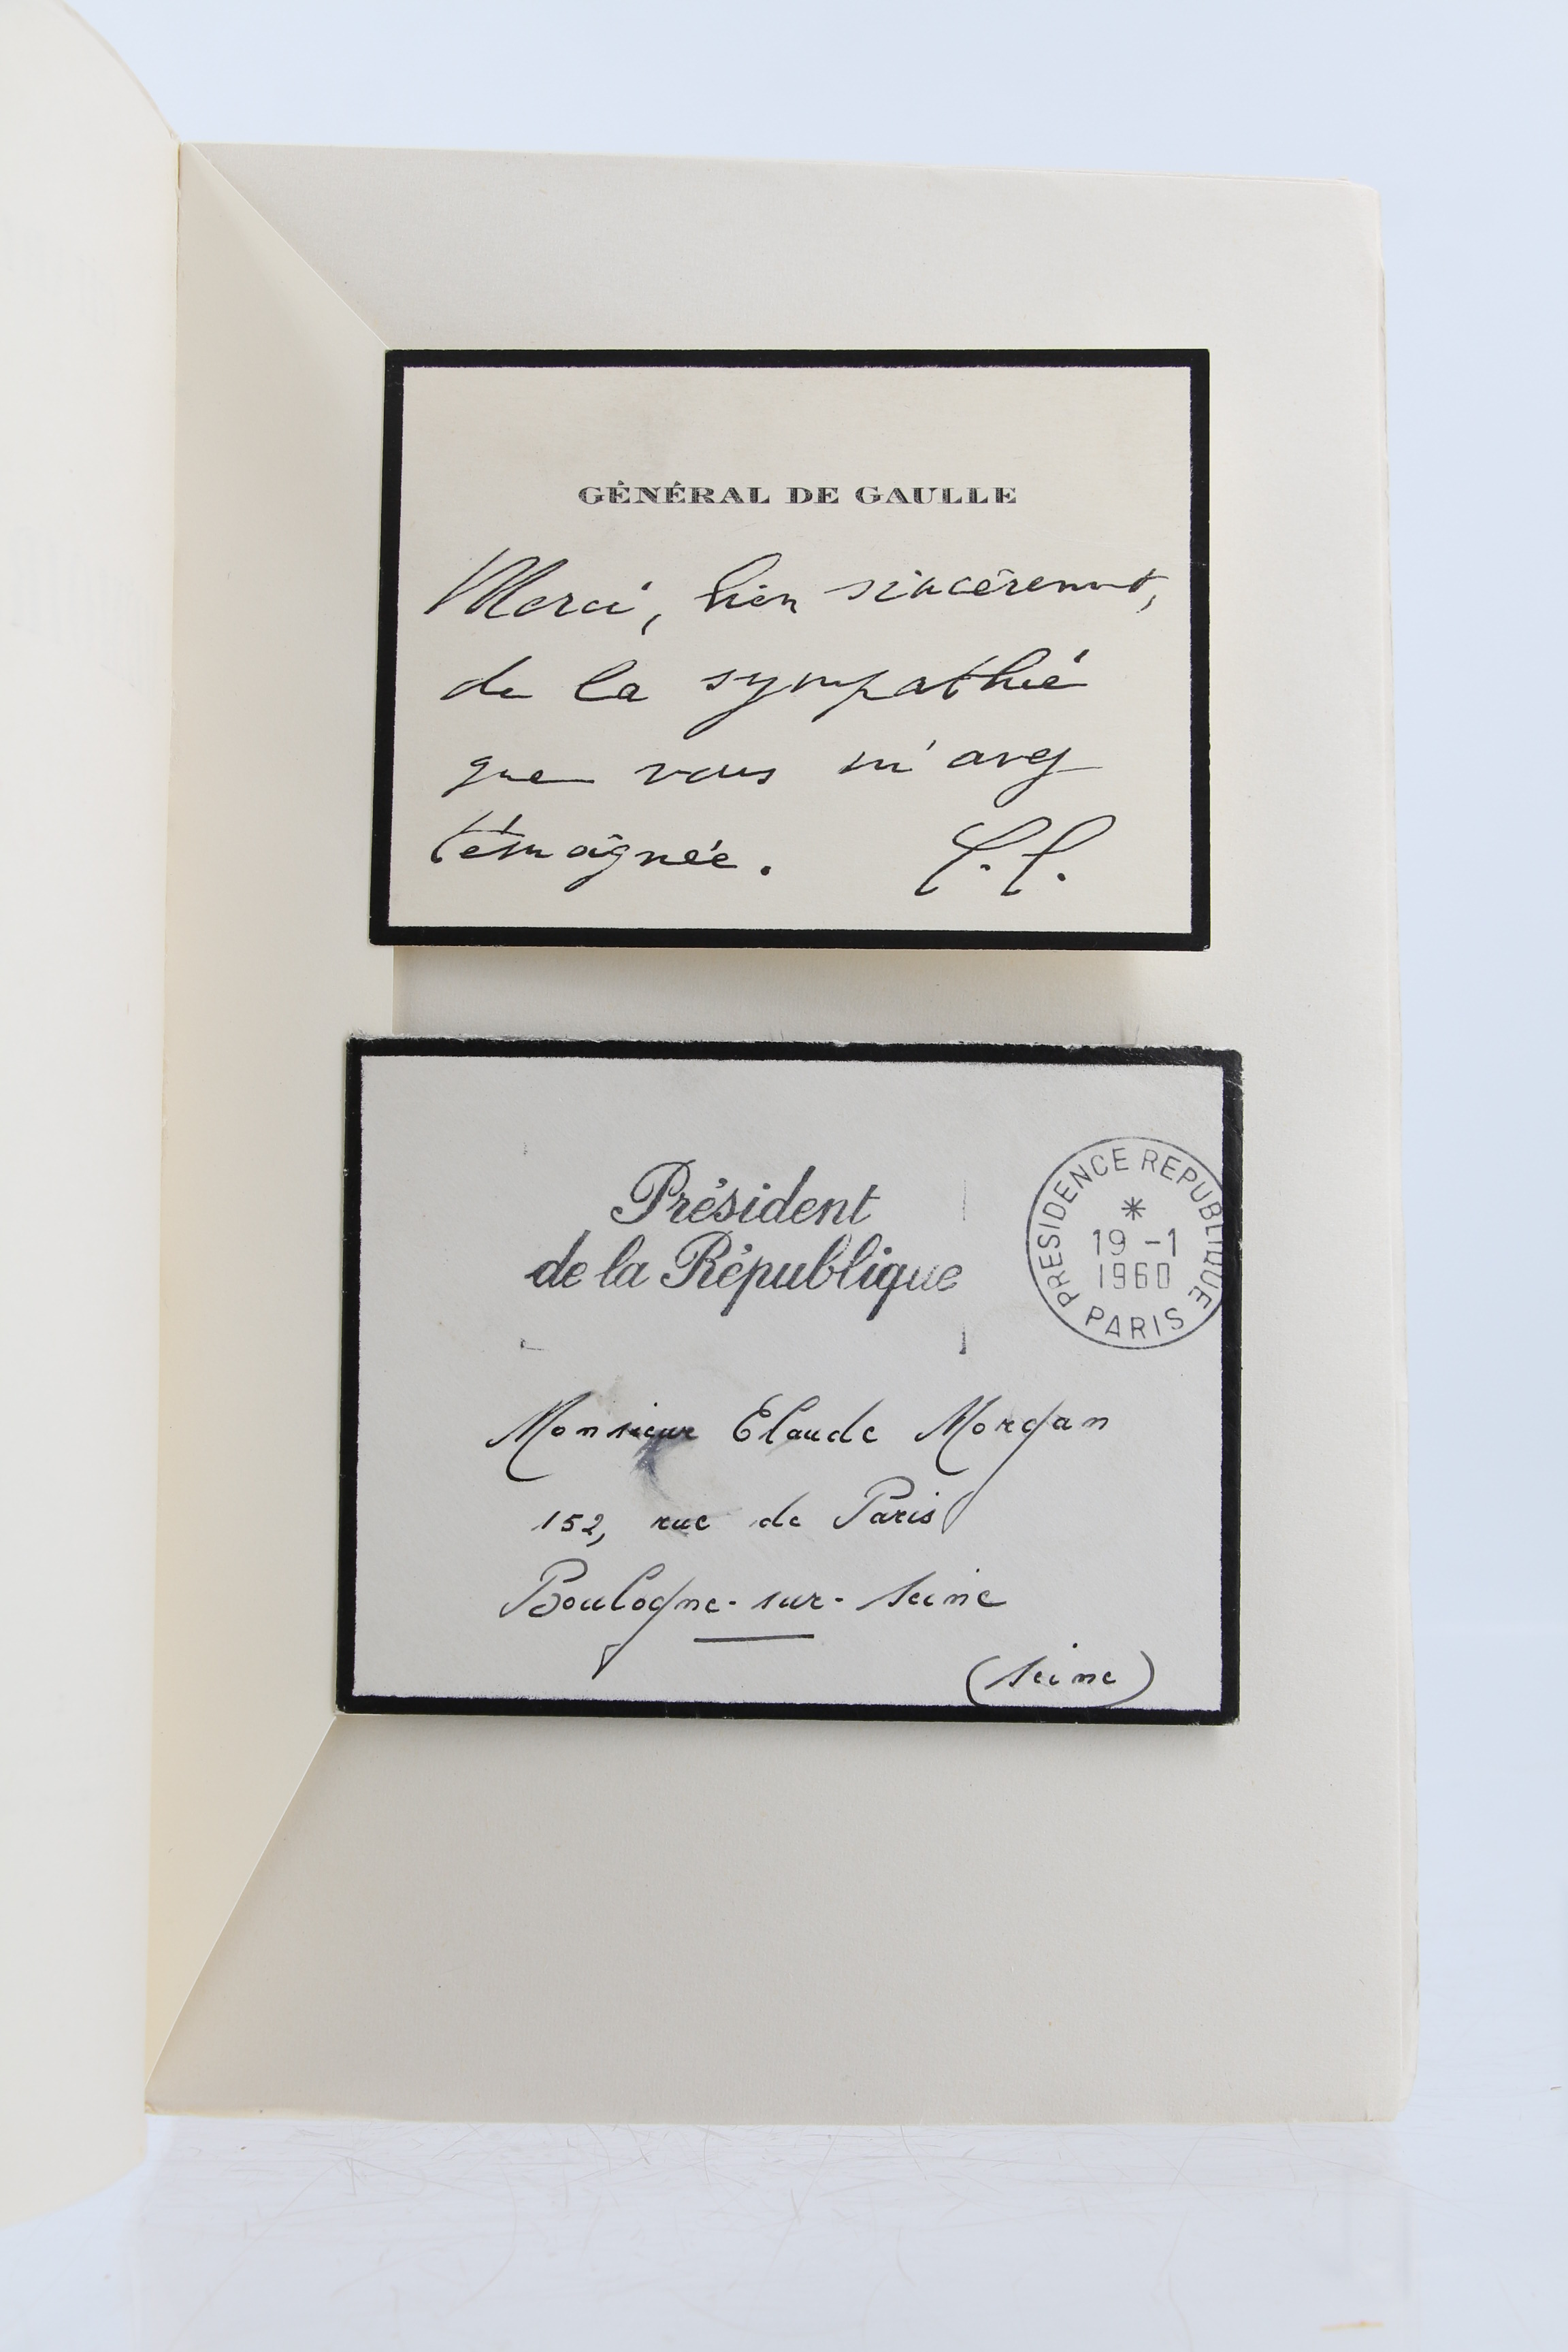 GÉNÉRAL DE GAULLE
Merci, bien sincèrement,
de la sympathie
que vous m'avez
témoignée.
Président
de la République
PRESIDENCE REPUBLIQUE
19 -1
1960
PARIS
Monsieur Claude Morgan
152, rue de Paris
Boulogne-sur-Seine
(Seine)